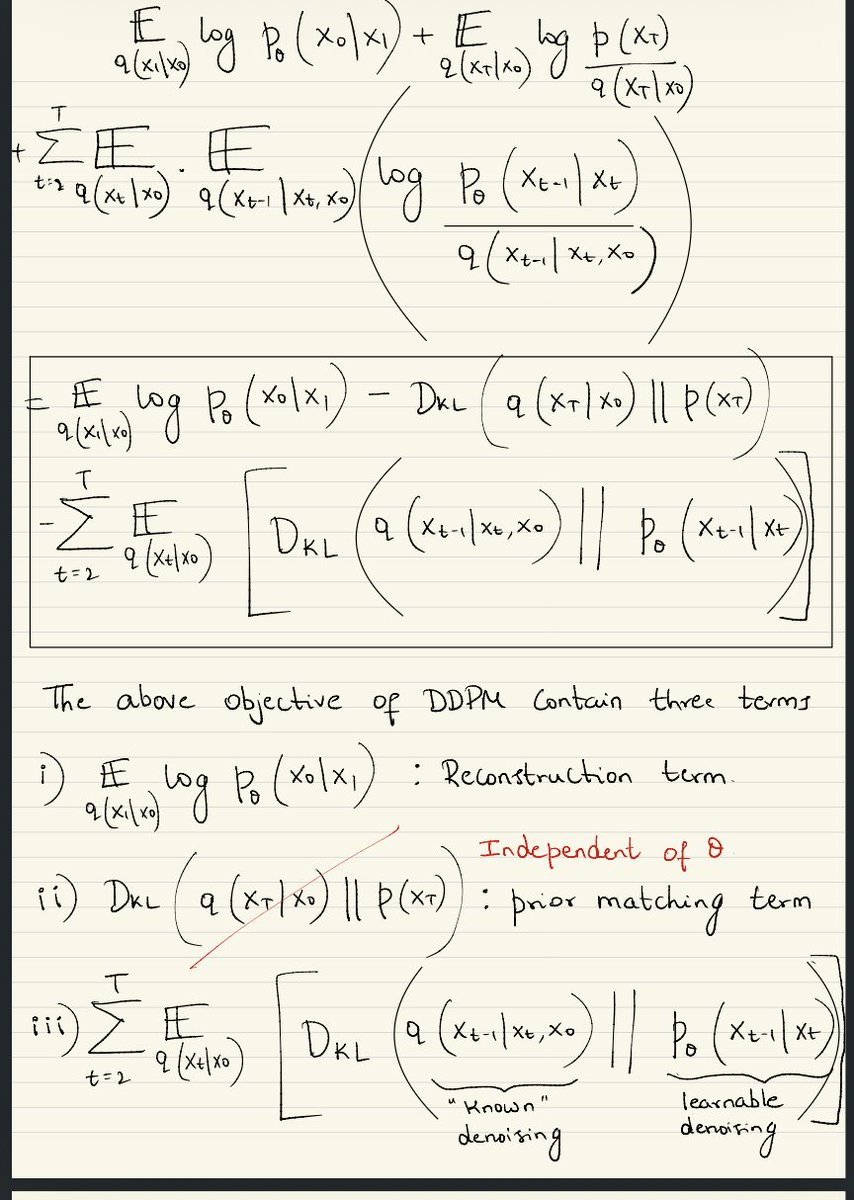 𝔼_{q(x₁|x₀)} log p_θ(x₀|x₁) + 𝔼_{q(x_T|x₀)} log p(x_T) / q(x_T|x₀)
+ Σ_{t=2}^{T} 𝔼_{q(x_t|x₀)} · 𝔼_{q(x_{t-1}|x_t,x₀)} ( log p_θ(x_{t-1}|x_t) / q(x_{t-1}|x_t,x₀) )
= 𝔼_{q(x₁|x₀)} log p_θ(x₀|x₁) − D_KL( q(x_T|x₀) || p(x_T) )
− Σ_{t=2}^{T} 𝔼_{q(x_t|x₀)} [ D_KL( q(x_{t-1}|x_t,x₀) || p_θ(x_{t-1}|x_t) ) ]
The above objective of DDPM contain three terms
i) 𝔼_{q(x₁|x₀)} log p_θ(x₀|x₁) : Reconstruction term.
Independent of θ
ii) D_KL( q(x_T|x₀) || p(x_T) ) : prior matching term
iii) Σ_{t=2}^{T} 𝔼_{q(x_t|x₀)} [ D_KL( q(x_{t-1}|x_t,x₀) || p_θ(x_{t-1}|x_t) ) ]
"Known" learnable
denoising denoising